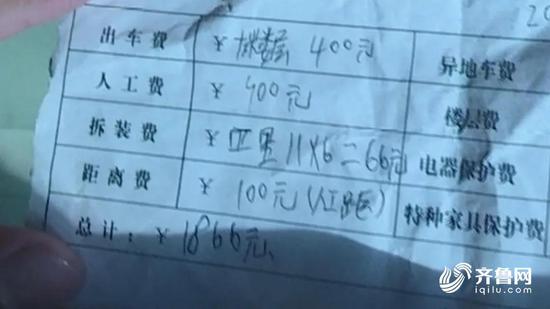 20
出车费 ¥ 400元 异地车费
人工费 ¥ 400元 楼层费
拆装费 ¥ 11X6=66元 电器保护费
距离费 ¥ 100元 特种家具保护费
总计：¥ 1866元
齐鲁网
iqilu.com